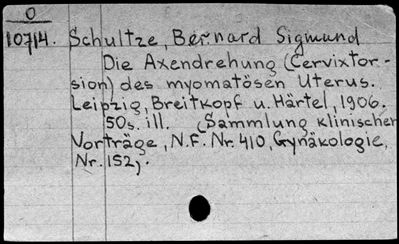 O
10714. Schultze, Bernard Sigmund
Die Axendrehung (Cervixtor-
sion) des myomatösen Uterus.
Leipzig, Breitkopf u. Härtel, 1906.
50s. ill. (Sammlung klinischer
Vorträge, N.F. Nr. 410, Gynäkologie,
Nr. 152).